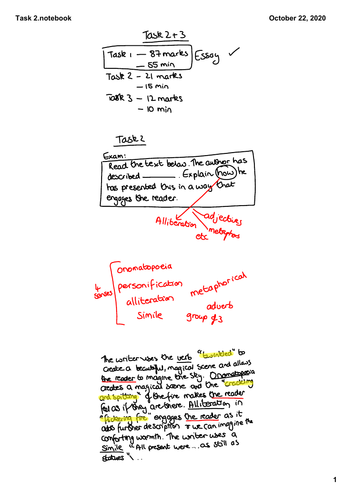 Task 2.notebook
October 22, 2020
Task 2 + 3
Task 1 — 87 marks
— 55 min
Essay ✓
Task 2 – 21 marks
– 15 min
Task 3 – 12 marks
– 10 min
Task 2
Exam:
Read the text below. The author has
described ______. Explain how he
has presented this in a way that
engages the reader.
Alliteration
adjectives
metaphors
etc
4
senses
onomatopoeia
personification
alliteration
Simile
metaphorical
adverb
group of 3
The writer uses the verb "twinkled" to
create a beautiful, magical scene and allows
the reader to imagine the sky. Onomatopoeia
creates a magical scene and the "crackling
and spitting" of the fire makes the reader
feel as if they are there. Alliteration in
"flickering fire" engages the reader as it
adds further description & we can imagine the
comforting warmth. The writer uses a
Simile "All present were... as still as
statues"...
1